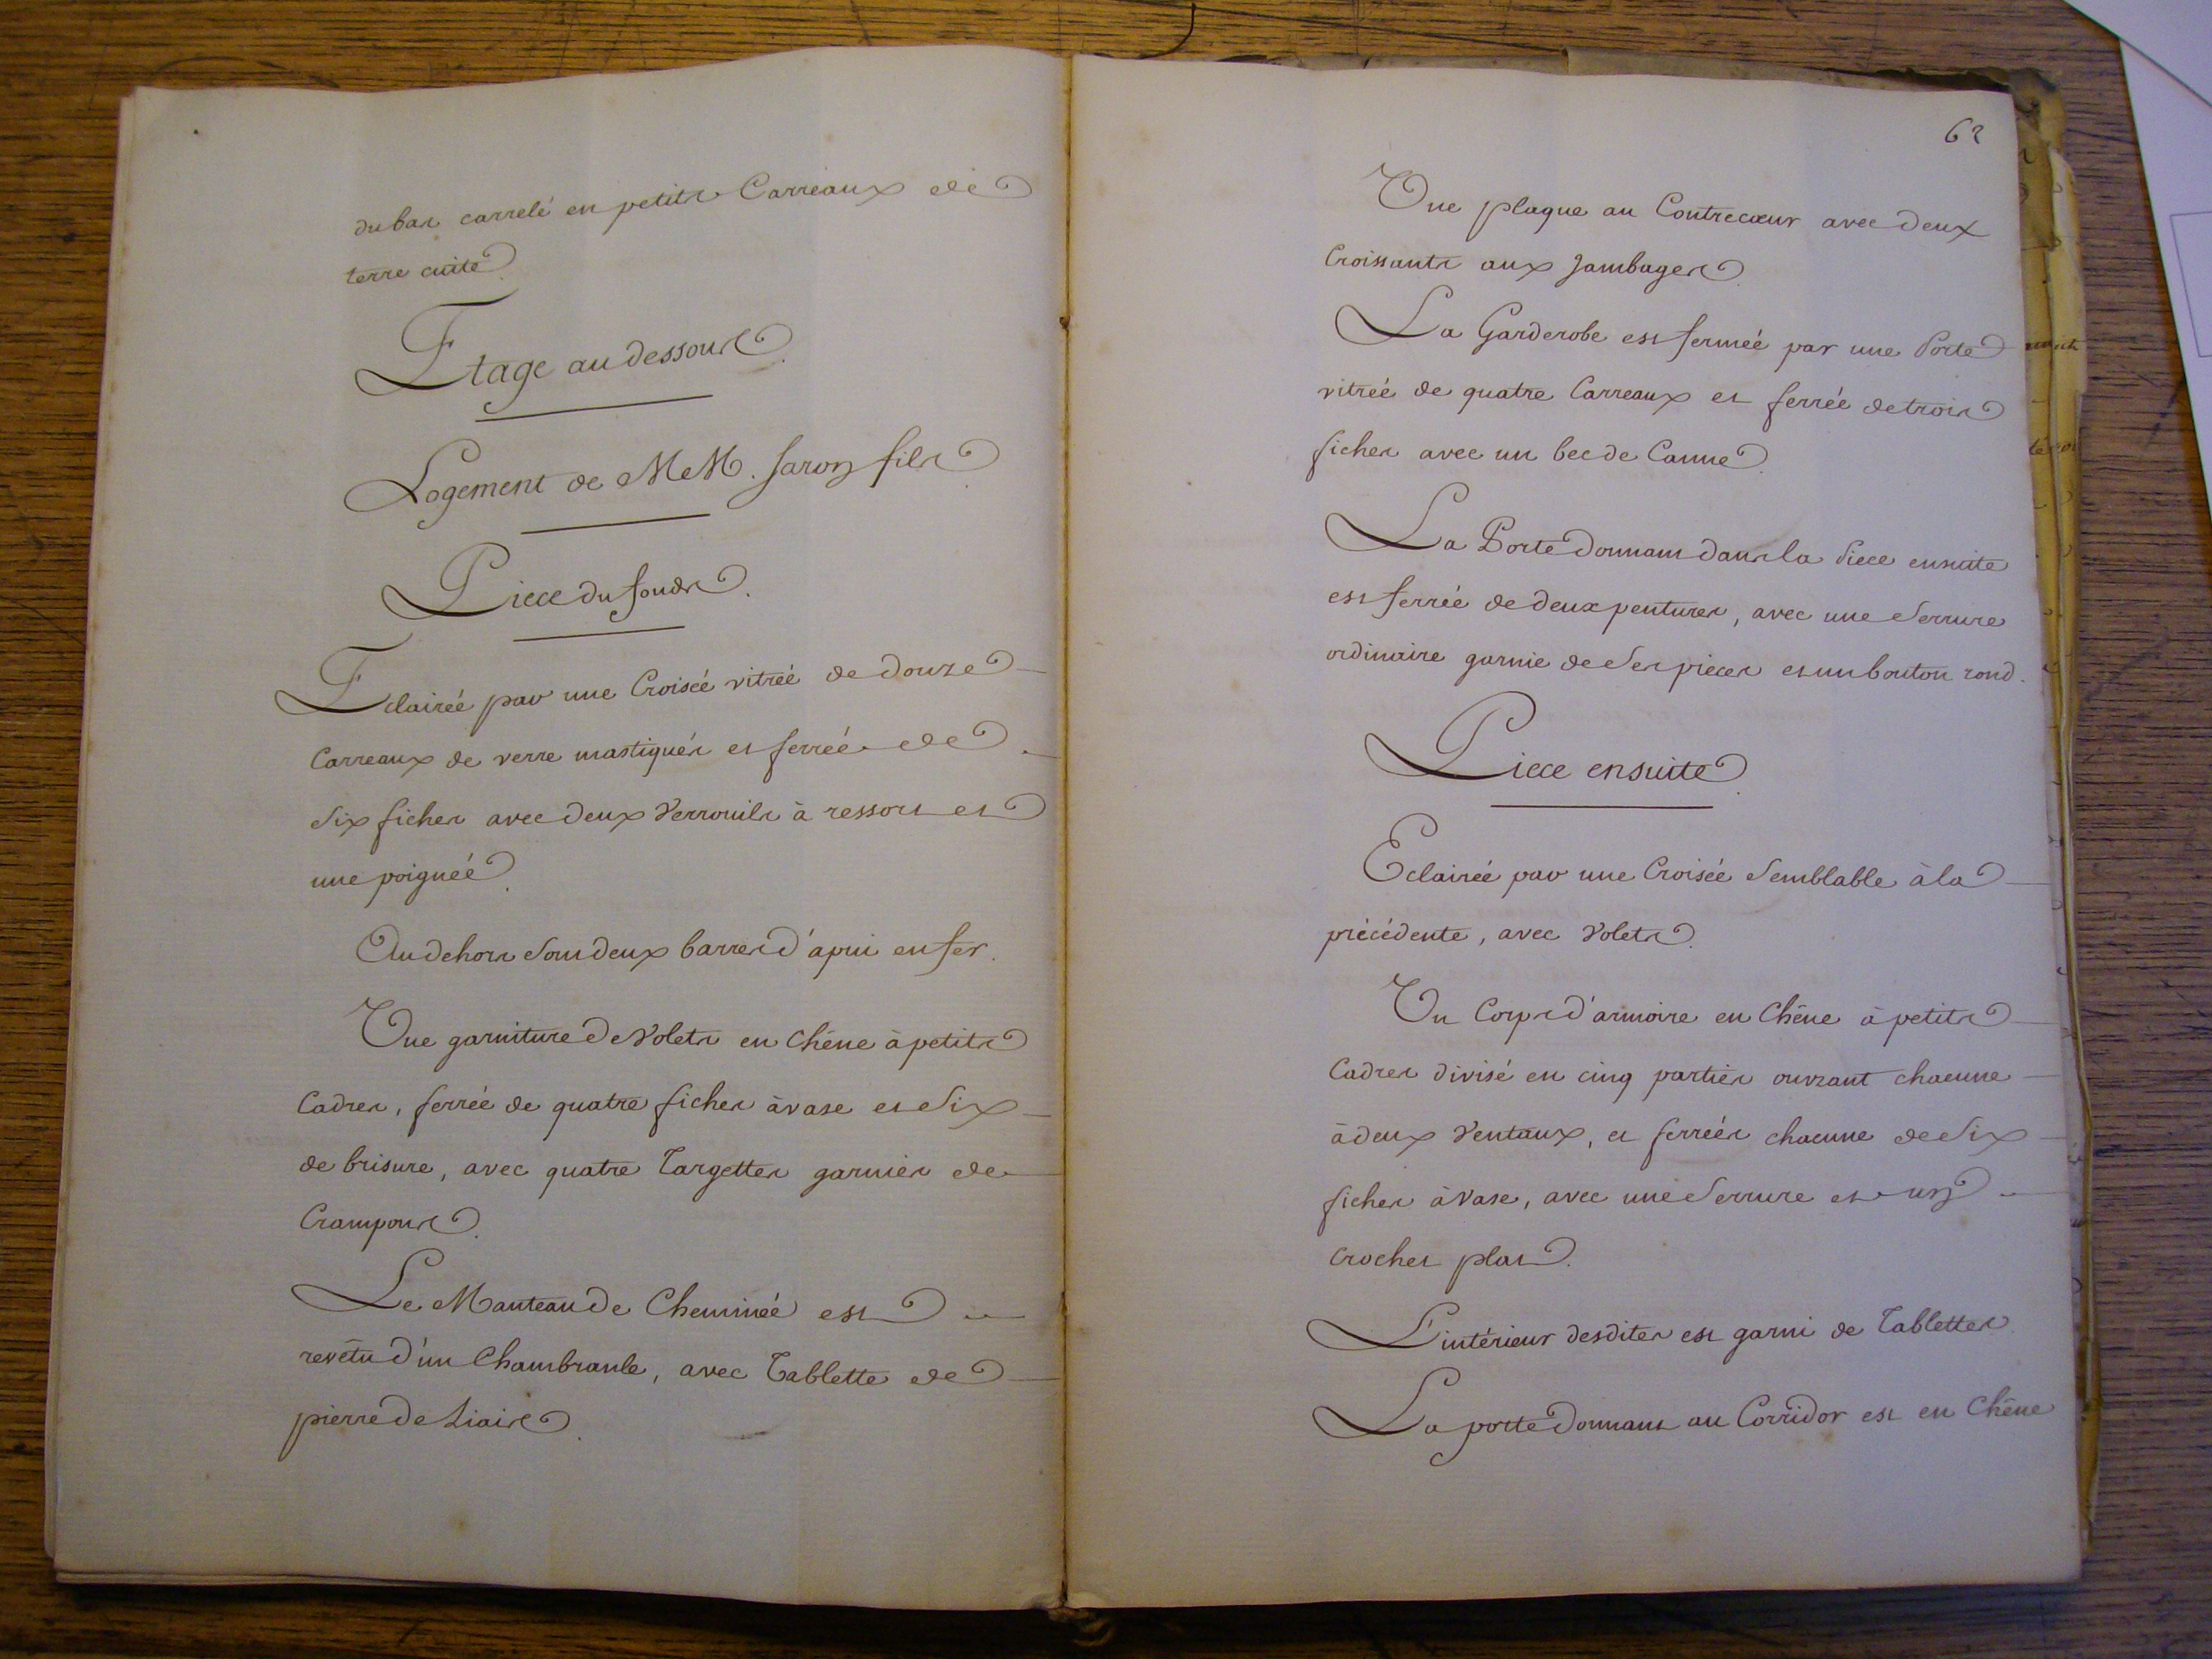 du bas carrelé en petits Carreaux de
terre cuite.
Etage au dessous.
Logement de MeM. Jaron fils.
Piece du fonds.
Eclairéé par une Croiséé vitréé de douze
Carreaux de verre mastiqués et ferréé de
Six fiches avec deux Verrouils à ressort et
une poignéé.
Au dehors Sont deux barres d'apui en fer.
Une garniture de Volets en Chêne à petits
Cadres, ferrée de quatre fiches à vase et Six
de brisure, avec quatre Targettes garnies de
Crampons.
Le Manteau de Cheminéé est
revêtu d'un Chambranle, avec Tablette de
pierre de Liais.
62
Une plaque au Contrecœur avec deux
Croissants aux Jambages.
La Garderobe est ferméé par une Porte
vitréé de quatre Carreaux et ferrée de trois
fiches avec un bec de Canne.
La Porte donnant dans la Piece ensuite
est ferréé de deux pentures, avec une Serrure
ordinaire garnie de Ses pieces et un bouton rond.
Piece ensuite.
Eclairéé par une Croisée Semblable à la
précédente, avec Volets.
Un Corps d'armoire en Chêne à petits
Cadres divisé en cinq parties ouvrant chacune
à deux Ventaux, et ferréés chacune de Six
fiches à Vase, avec une Serrure et un
Crochet plat.
L'intérieur desdites est garni de Tablettes
La porte donnant au Corridor est en Chêne